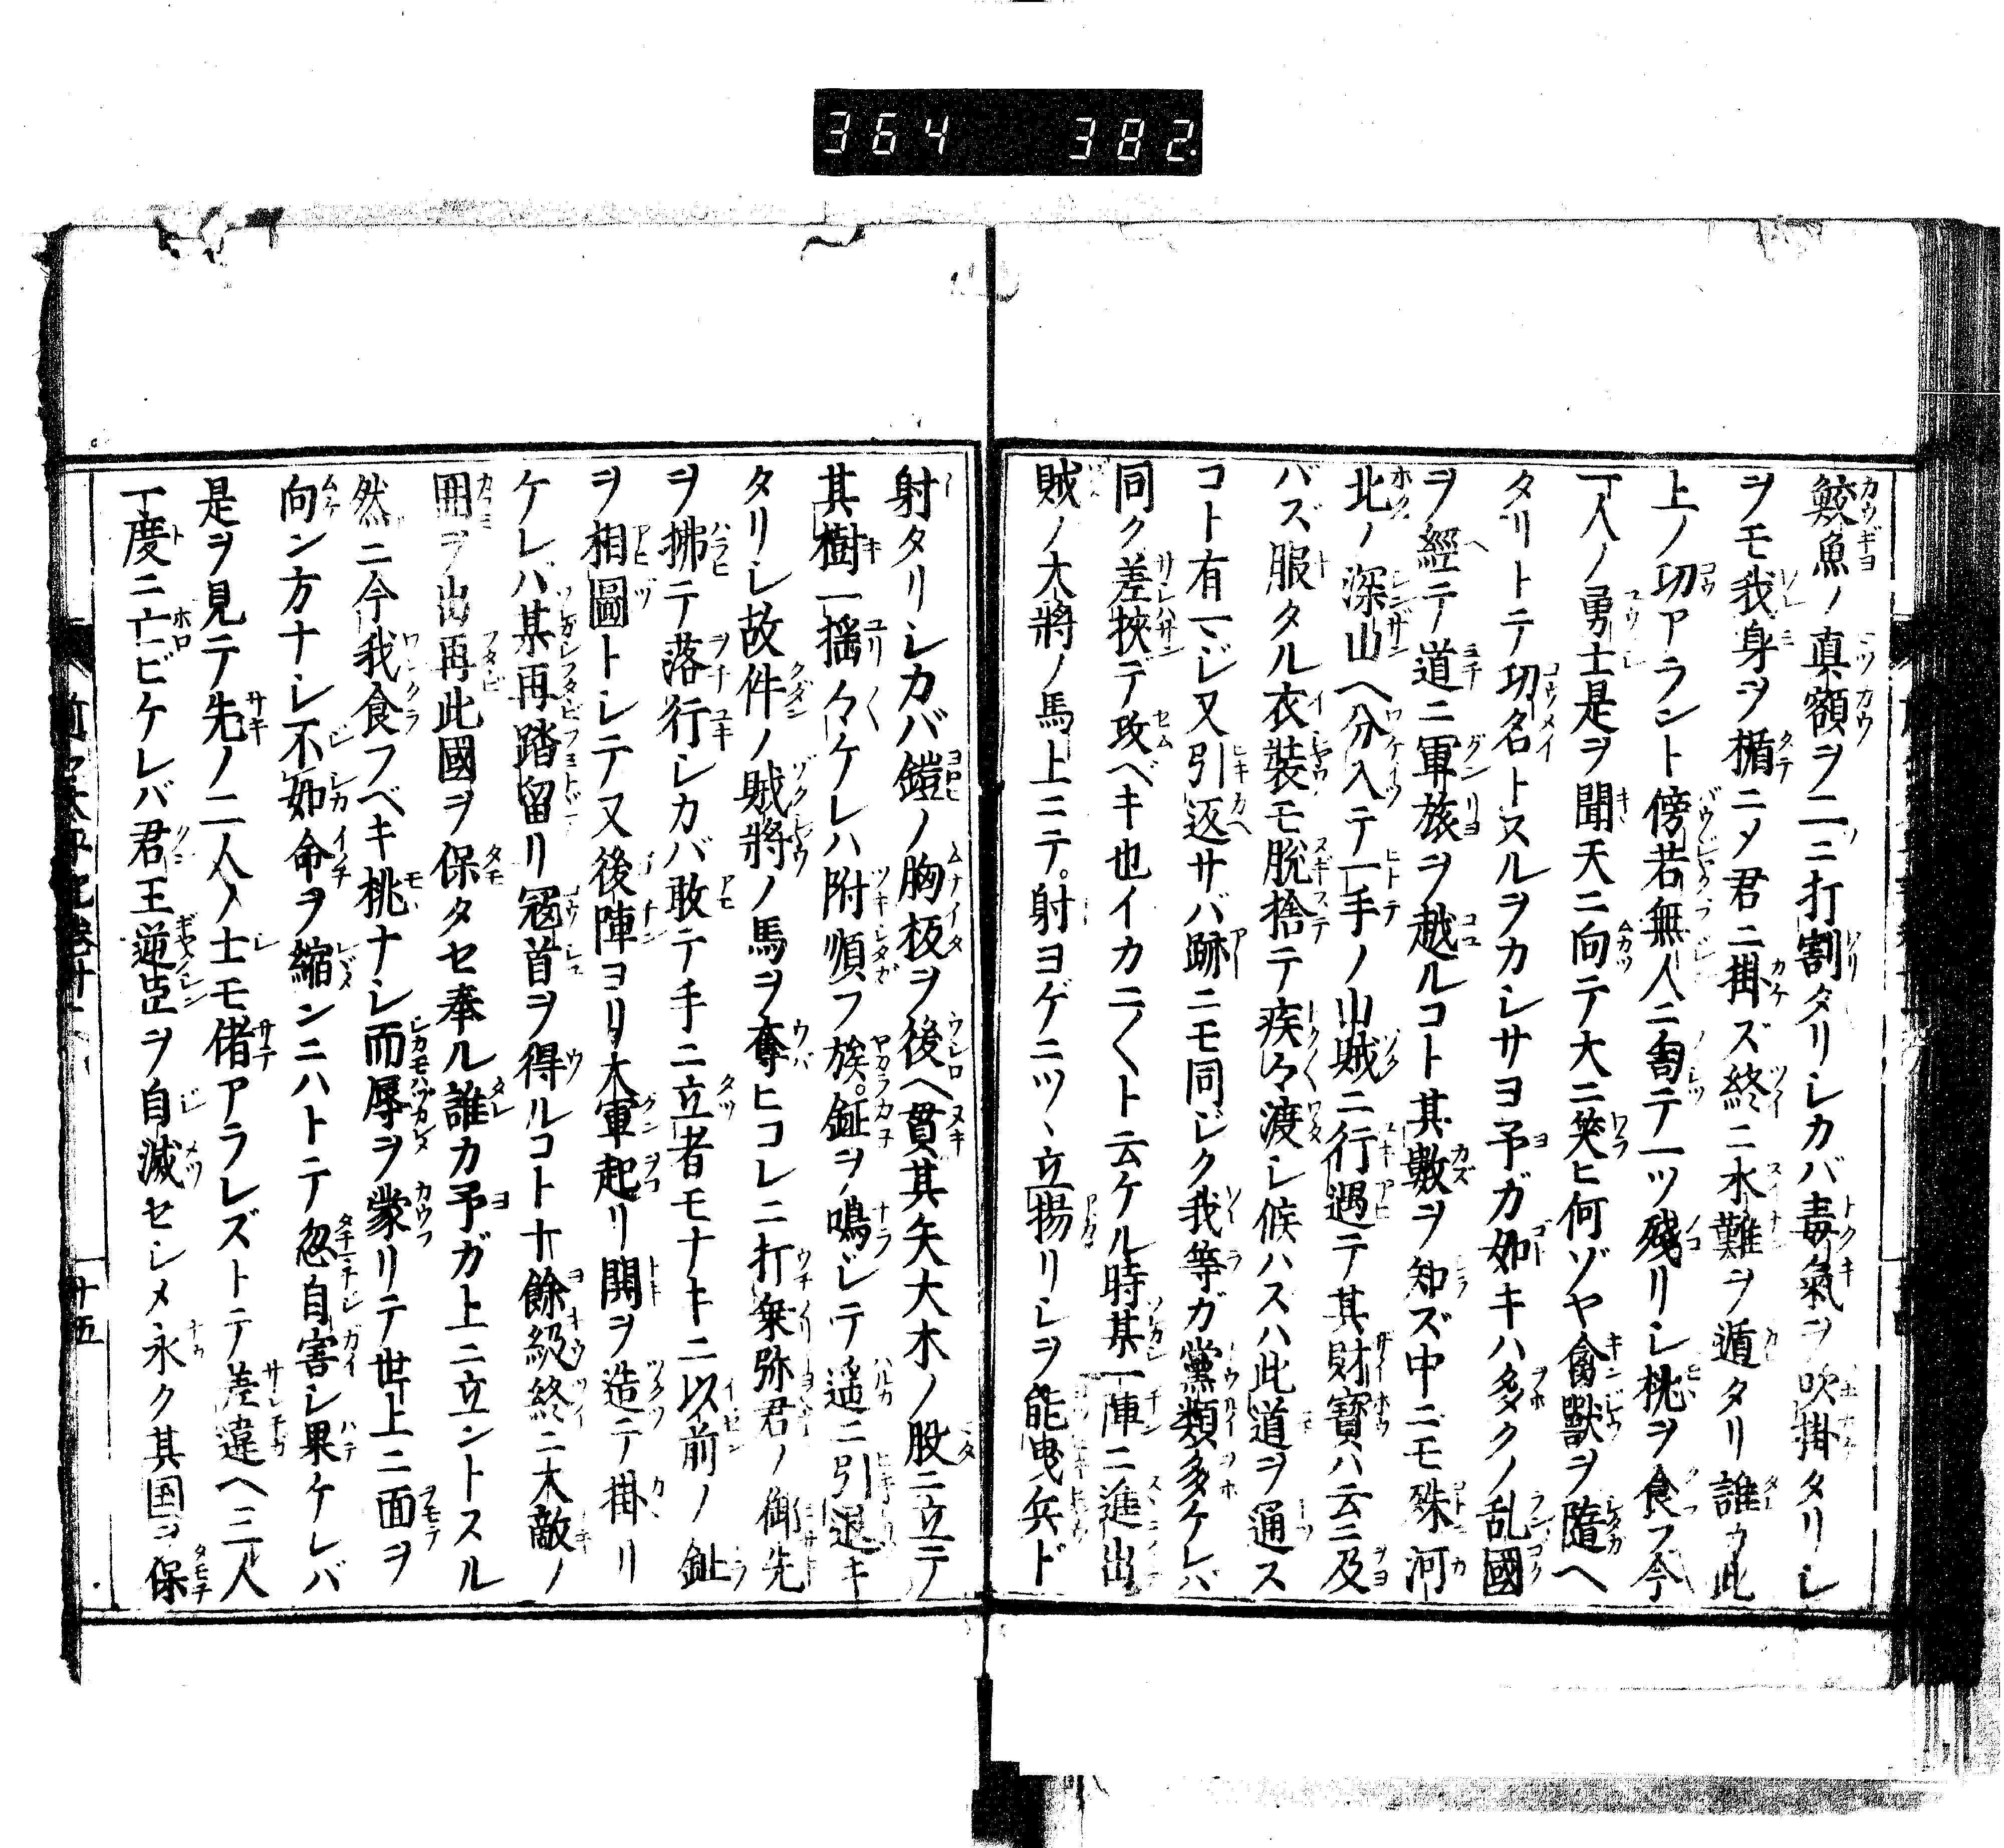 364 382
鮫魚ノ真額ヲ二ニ打割タリシカバ毒氣ヲ吹掛タリシ
ヲモ我身ヲ楯ニメ君ニ掛ズ終ニ水難ヲ遁タリ誰カ此
上ノ切アラント傍若無人ニ訇テ一ツ殘リシ桃ヲ食フ今
一人ノ勇士是ヲ聞天ニ向テ大ニ笑ヒ何ゾヤ禽獸ヲ隨ヘ
タリトテ切名トスルヲカシサヨ予ガ如キハ多クノ乱國
ヲ經テ道ニ軍旅ヲ越ルコト其數ヲ知ズ中ニモ殊河
北ノ深山ヘ分入テ一手ノ山賊ニ行遇テ其財寶ハ云ニ及
バズ服タル衣裝モ脫捨テ疾々渡シ候ハスハ此道ヲ通ス
コト有マジ又引返サバ跡ニモ同ジク我等ガ黨類多ケレバ
同ク差挾デ攻ベキ也イカニ〱ト云ケル時某一陣ニ進出
賊ノ大將ノ馬上ニテ射ヨゲニツヽ立揚リシヲ能曵兵ド
射タリシカバ鎧ノ胸板ヲ後ヘ貫其矢大木ノ股ニ立テ
其樹一揺々ケレハ附順フ族鉦ヲ鳴ジテ遥ニ引退キ
タリシ故件ノ賊將ノ馬ヲ奪ヒコレニ打乗弥君ノ御先
ヲ拂テ落行シカバ敢テ手ニ立者モナキニ以前ノ
ヲ相圖トシテ又後陣ヨリ大軍起リ鬨ヲ造テ掛リ
ケレバ某再踏留リ冦首ヲ得ルコト十餘級終ニ大敵ノ
囲ヲ出再此國ヲ保タセ奉ル誰カ予ガ上ニ立ントスル
然ニ今我食フベキ桃ナシ而辱ヲ蒙リテ世上ニ面ヲ
向ン方ナシ不如命ヲ縮ンニハトテ忽自害シ果ケレバ
是ヲ見テ先ノ二人ノ士モ偖アラレズトテ差違ヘ三人
一度ニ亡ビケレバ君王逆臣ヲ自滅セシメ永ク其国ヲ保
十五